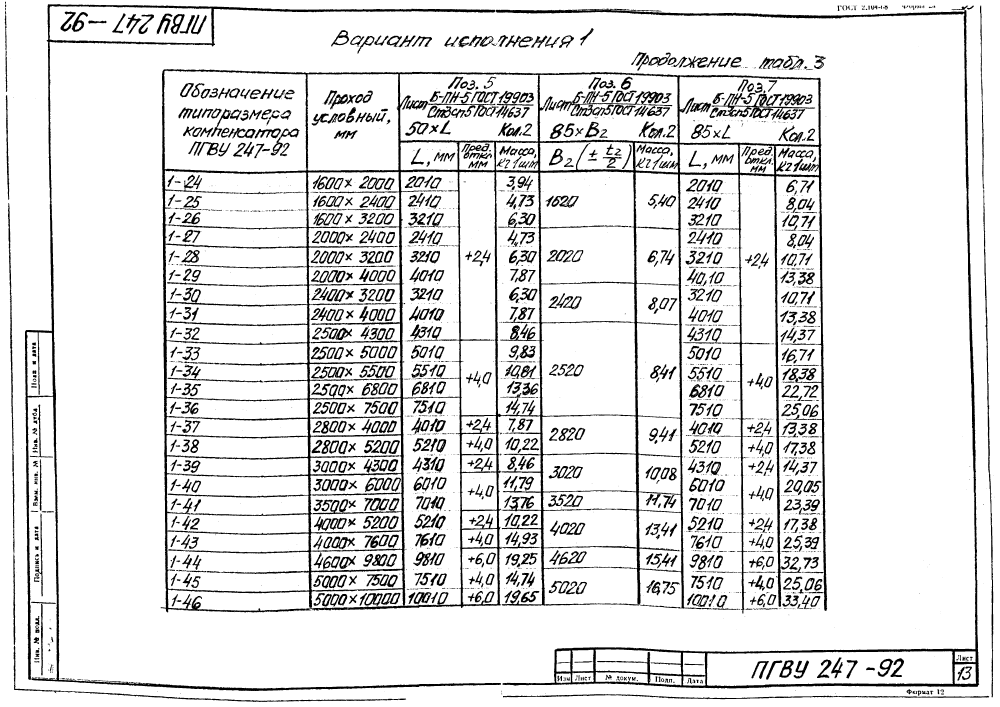 ГОСТ 2.104-68
ПГВУ 247-92
Вариант исполнения 1
Продолжение табл. 3
Обозначение типоразмера компенсатора ПГВУ 247-92 | Проход условный, мм | Поз. 5 Лист Б-ПН-5 ГОСТ 19903 / Ст3сп5 ГОСТ 14637 50×L Кол. 2 | Поз. 6 Лист Б-ПН-5 ГОСТ 19903 / Ст3сп5 ГОСТ 14637 85×B2 Кол. 2 | Поз. 7 Лист Б-ПН-5 ГОСТ 19903 / Ст3сп5 ГОСТ 14637 85×L Кол. 2
L, мм | Пред. откл. мм | Масса, кг 1 шт | B2 (± t2/2) | Масса, кг 1 шт | L, мм | Пред. откл. мм | Масса, кг 1 шт
1-24 | 1600×2000 | 2010 | +2,4 | 3,94 | 1620 | 5,40 | 2010 | +2,4 | 6,71
1-25 | 1600×2400 | 2410 | 4,73 | 2410 | 8,04
1-26 | 1600×3200 | 3210 | 6,30 | 3210 | 10,71
1-27 | 2000×2400 | 2410 | 4,73 | 2020 | 6,74 | 2410 | 8,04
1-28 | 2000×3200 | 3210 | 6,30 | 3210 | 10,71
1-29 | 2000×4000 | 4010 | 7,87 | 40,10 | 13,38
1-30 | 2400×3200 | 3210 | 6,30 | 2420 | 8,07 | 3210 | 10,71
1-31 | 2400×4000 | 4010 | 7,87 | 4010 | 13,38
1-32 | 2500×4300 | 4310 | 8,46 | 2520 | 8,41 | 4310 | 14,37
1-33 | 2500×5000 | 5010 | +4,0 | 9,83 | 5010 | +4,0 | 16,71
1-34 | 2500×5500 | 5510 | 10,81 | 5510 | 18,38
1-35 | 2500×6800 | 6810 | 13,36 | 6810 | 22,72
1-36 | 2500×7500 | 7510 | 14,74 | 7510 | 25,06
1-37 | 2800×4000 | 4010 | +2,4 | 7,87 | 2820 | 9,41 | 4010 | +2,4 | 13,38
1-38 | 2800×5200 | 5210 | +4,0 | 10,22 | 5210 | +4,0 | 17,38
1-39 | 3000×4300 | 4310 | +2,4 | 8,46 | 3020 | 10,08 | 4310 | +2,4 | 14,37
1-40 | 3000×6000 | 6010 | +4,0 | 11,79 | 6010 | +4,0 | 20,05
1-41 | 3500×7000 | 7010 | 13,76 | 3520 | 11,74 | 7010 | 23,39
1-42 | 4000×5200 | 5210 | +2,4 | 10,22 | 4020 | 13,41 | 5210 | +2,4 | 17,38
1-43 | 4000×7600 | 7610 | +4,0 | 14,93 | 7610 | +4,0 | 25,39
1-44 | 4600×9800 | 9810 | +6,0 | 19,25 | 4620 | 15,41 | 9810 | +6,0 | 32,73
1-45 | 5000×7500 | 7510 | +4,0 | 14,74 | 5020 | 16,75 | 7510 | +4,0 | 25,06
1-46 | 5000×10000 | 10010 | +6,0 | 19,65 | 10010 | +6,0 | 33,40
Подп. и дата
Инв. № дубл.
Взам. инв. №
Подпись и дата
Инв. № подл.
Изм Лист № докум. Подп. Дата
ПГВУ 247-92
Лист
13
Формат 12